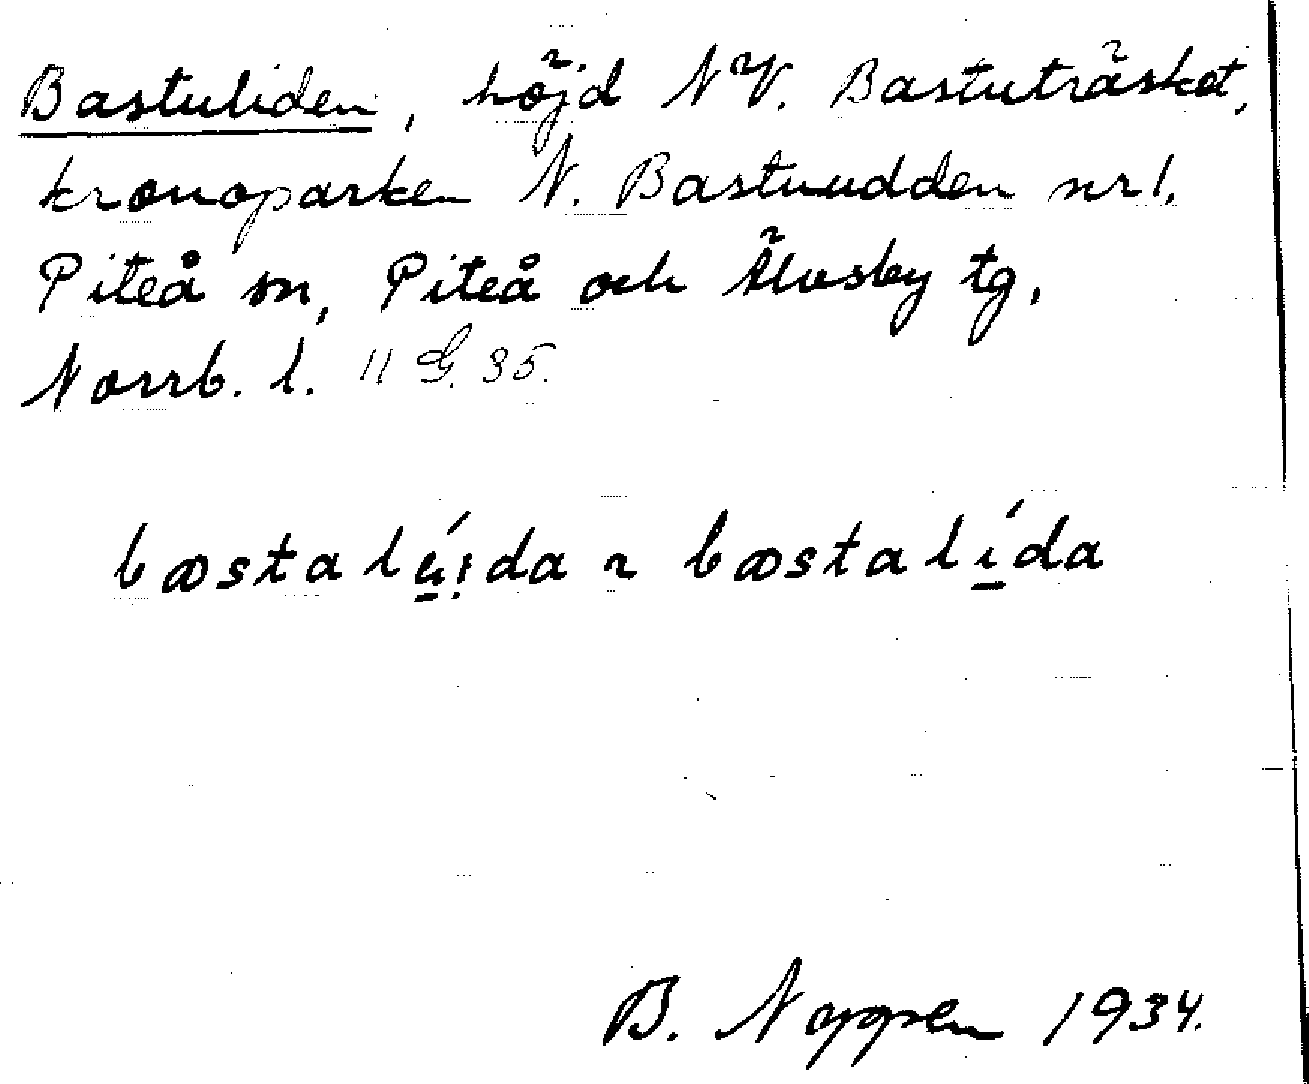 Bastuliden, höjd NV. Bastuträsket,
kronoparken N. Bastuudden nr 1.
Piteå sn, Piteå och Älvsby tg,
Norrb. l. 11 G. 35.
bæstalúi̯da ~ bæstalída
B. Noppen 1934.